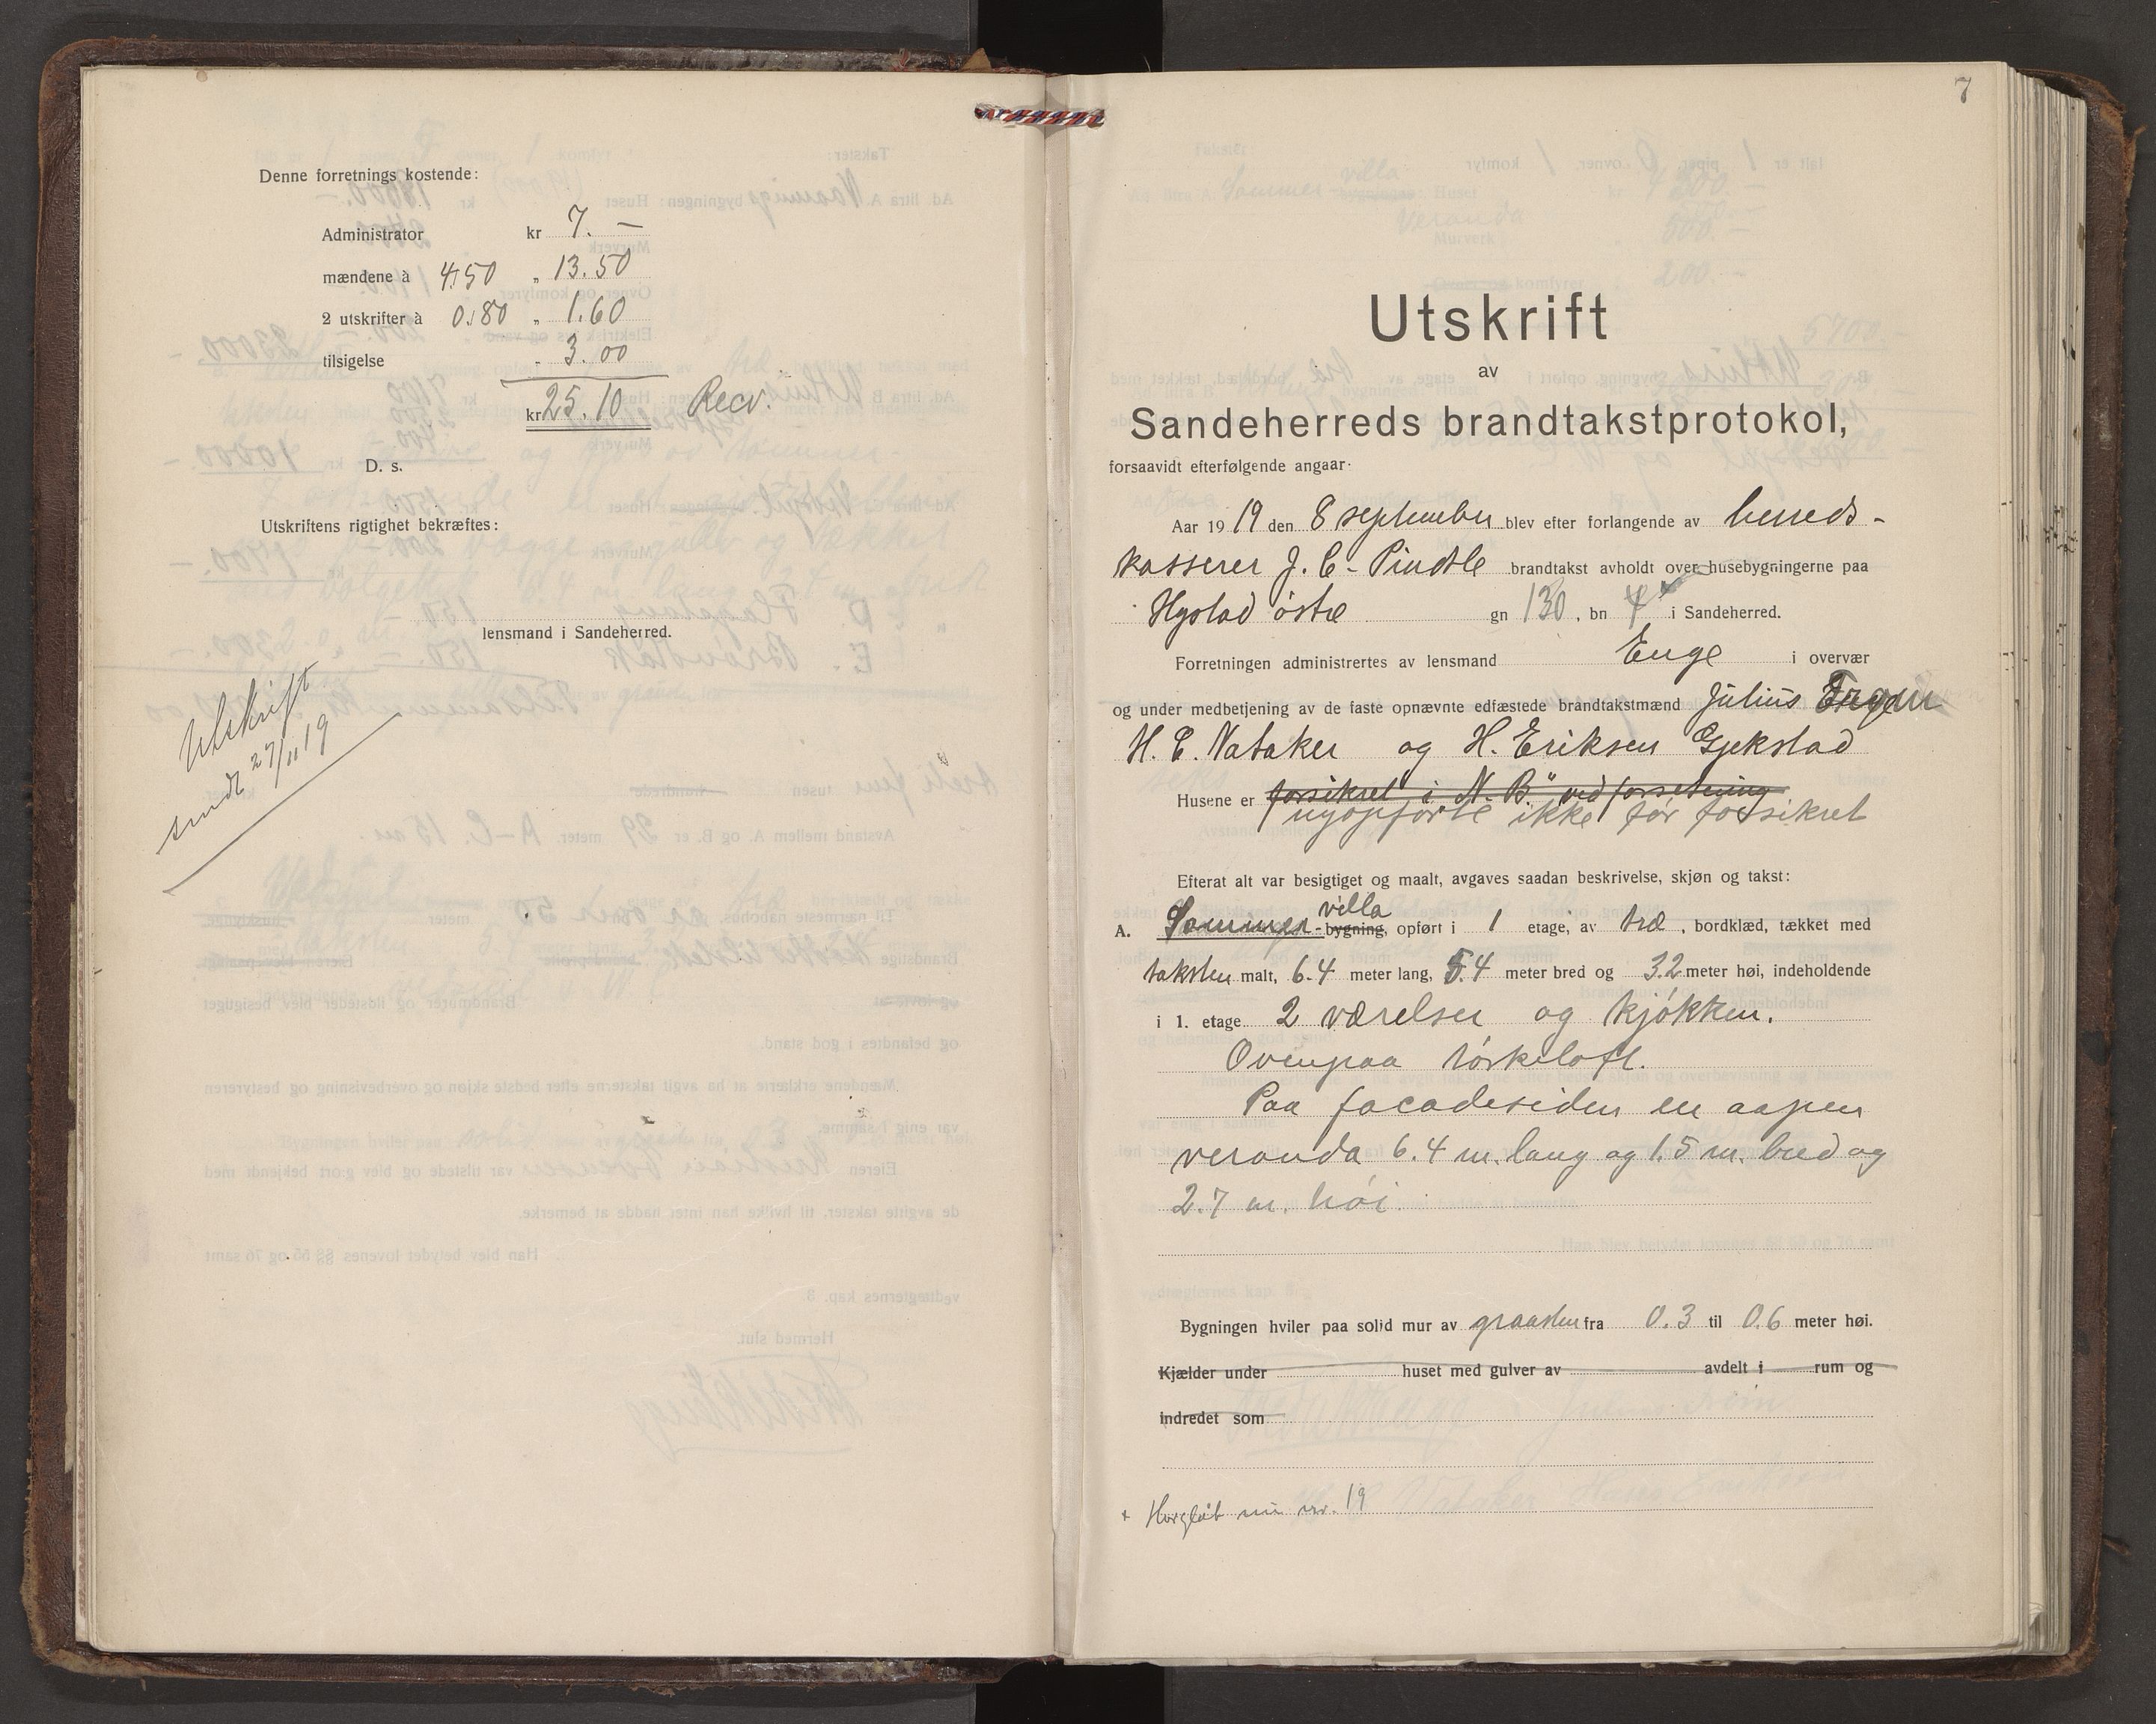 Denne forretnings kostende:
Administrator kr 7. —
mændene à 4.50 „ 13.50
2 utskrifter à 0.80 „ 1.60
tilsigelse - 3.00
kr 25.10 Recv.
D. s.
Utskriftens rigtighet bekræftes:
lensmand i Sandeherred.
Utskrift
sendt 27/11 19
7
Utskrift
av
Sandeherreds brandtakstprotokol,
forsaavidt efterfølgende angaar.
Aar 1919 den 8 september blev efter forlangende av herreds-
kasserer J. C. Pindsle brandtakst avholdt over husebygningerne paa
Hystad østre gn 130, bn 4 i Sandeherred.
Forretningen administrertes av lensmand Enge i overvær
og under medbetjening av de faste opnævnte edfæstede brandtakstmænd Julius
H. C. Nataker og H. Eriksen Gjekstad
Husene er forsikret i N. B. ved forsetning
nyopførte ikke før forsikret
Efterat alt var besigtiget og maalt, avgaves saadan beskrivelse, skjøn og takst:
villa
A. Sommer-bygning, opført i 1 etage, av træ, bordklæd, tækket med
taksten malt, 6.4 meter lang, 5.4 meter bred og 3.2 meter høi, indeholdende
i 1. etage 2 værelser og kjøkken.
Ovenpaa tørkeloft.
Paa facadesiden en aapen
veranda 6.4 m. lang og 1.5 m. bred og
2.7 m. høi.
Bygningen hviler paa solid mur av graasten fra 0.3 til 0.6 meter høi.
Kjælder under huset med gulver av avdelt i rum og
indredet som
nu nr. 19